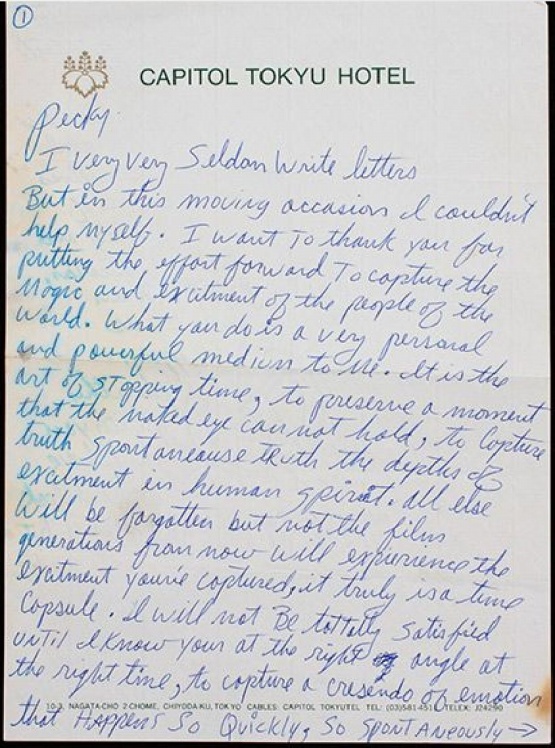 ①
CAPITOL TOKYU HOTEL
Pecky
I very very Seldon Write letters
But in this moving occasion I couldn't
help myself. I want To thank you for
putting the effort forward To capture the
Magic and excitment of the people of the
World. What you do is a very personal
and powerful medium to Me. It is the
art of STopping time, to preserve a moment
that the naked eye can not hold, to Capture
truth spontaneouse truth the depths of
excitment in human spirit. All else
Will be forgotten but not the film
generations from now will experience the
excitment you've captured, it truly is a time
Capsule. I will not Be totally Satisfied
until I Know your at the right angle at
the right time, to capture a cresendo of emotion
10-3, NAGATA-CHO 2-CHOME, CHIYODA-KU, TOKYO CABLES: CAPITOL TOKYUTEL TEL: (03)581-4511 TELEX: J24290
that HAPPENS So Quickly, So SpontAneously →